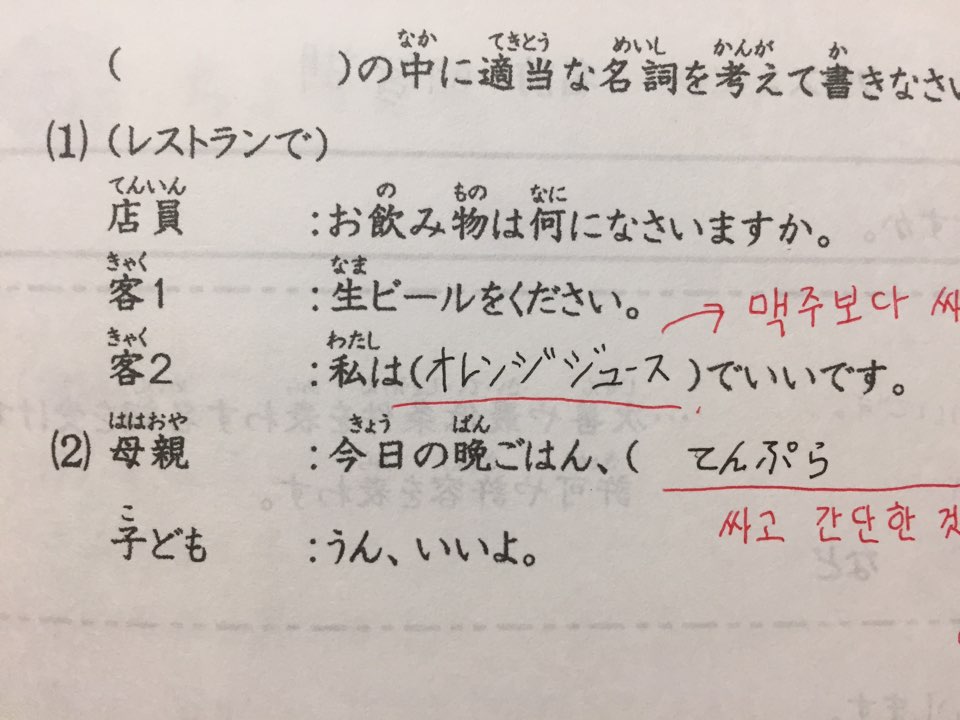 (　　　)の中に適当な名詞を考えて書きなさい
(1) (レストランで)
店員 :お飲み物は何になさいますか。
客1 :生ビールをください。
→ 맥주보다 싸
客2 :私は(オレンジジュース)でいいです。
(2) 母親 :今日の晩ごはん、( てんぷら
싸고 간단한 것
子ども :うん、いいよ。